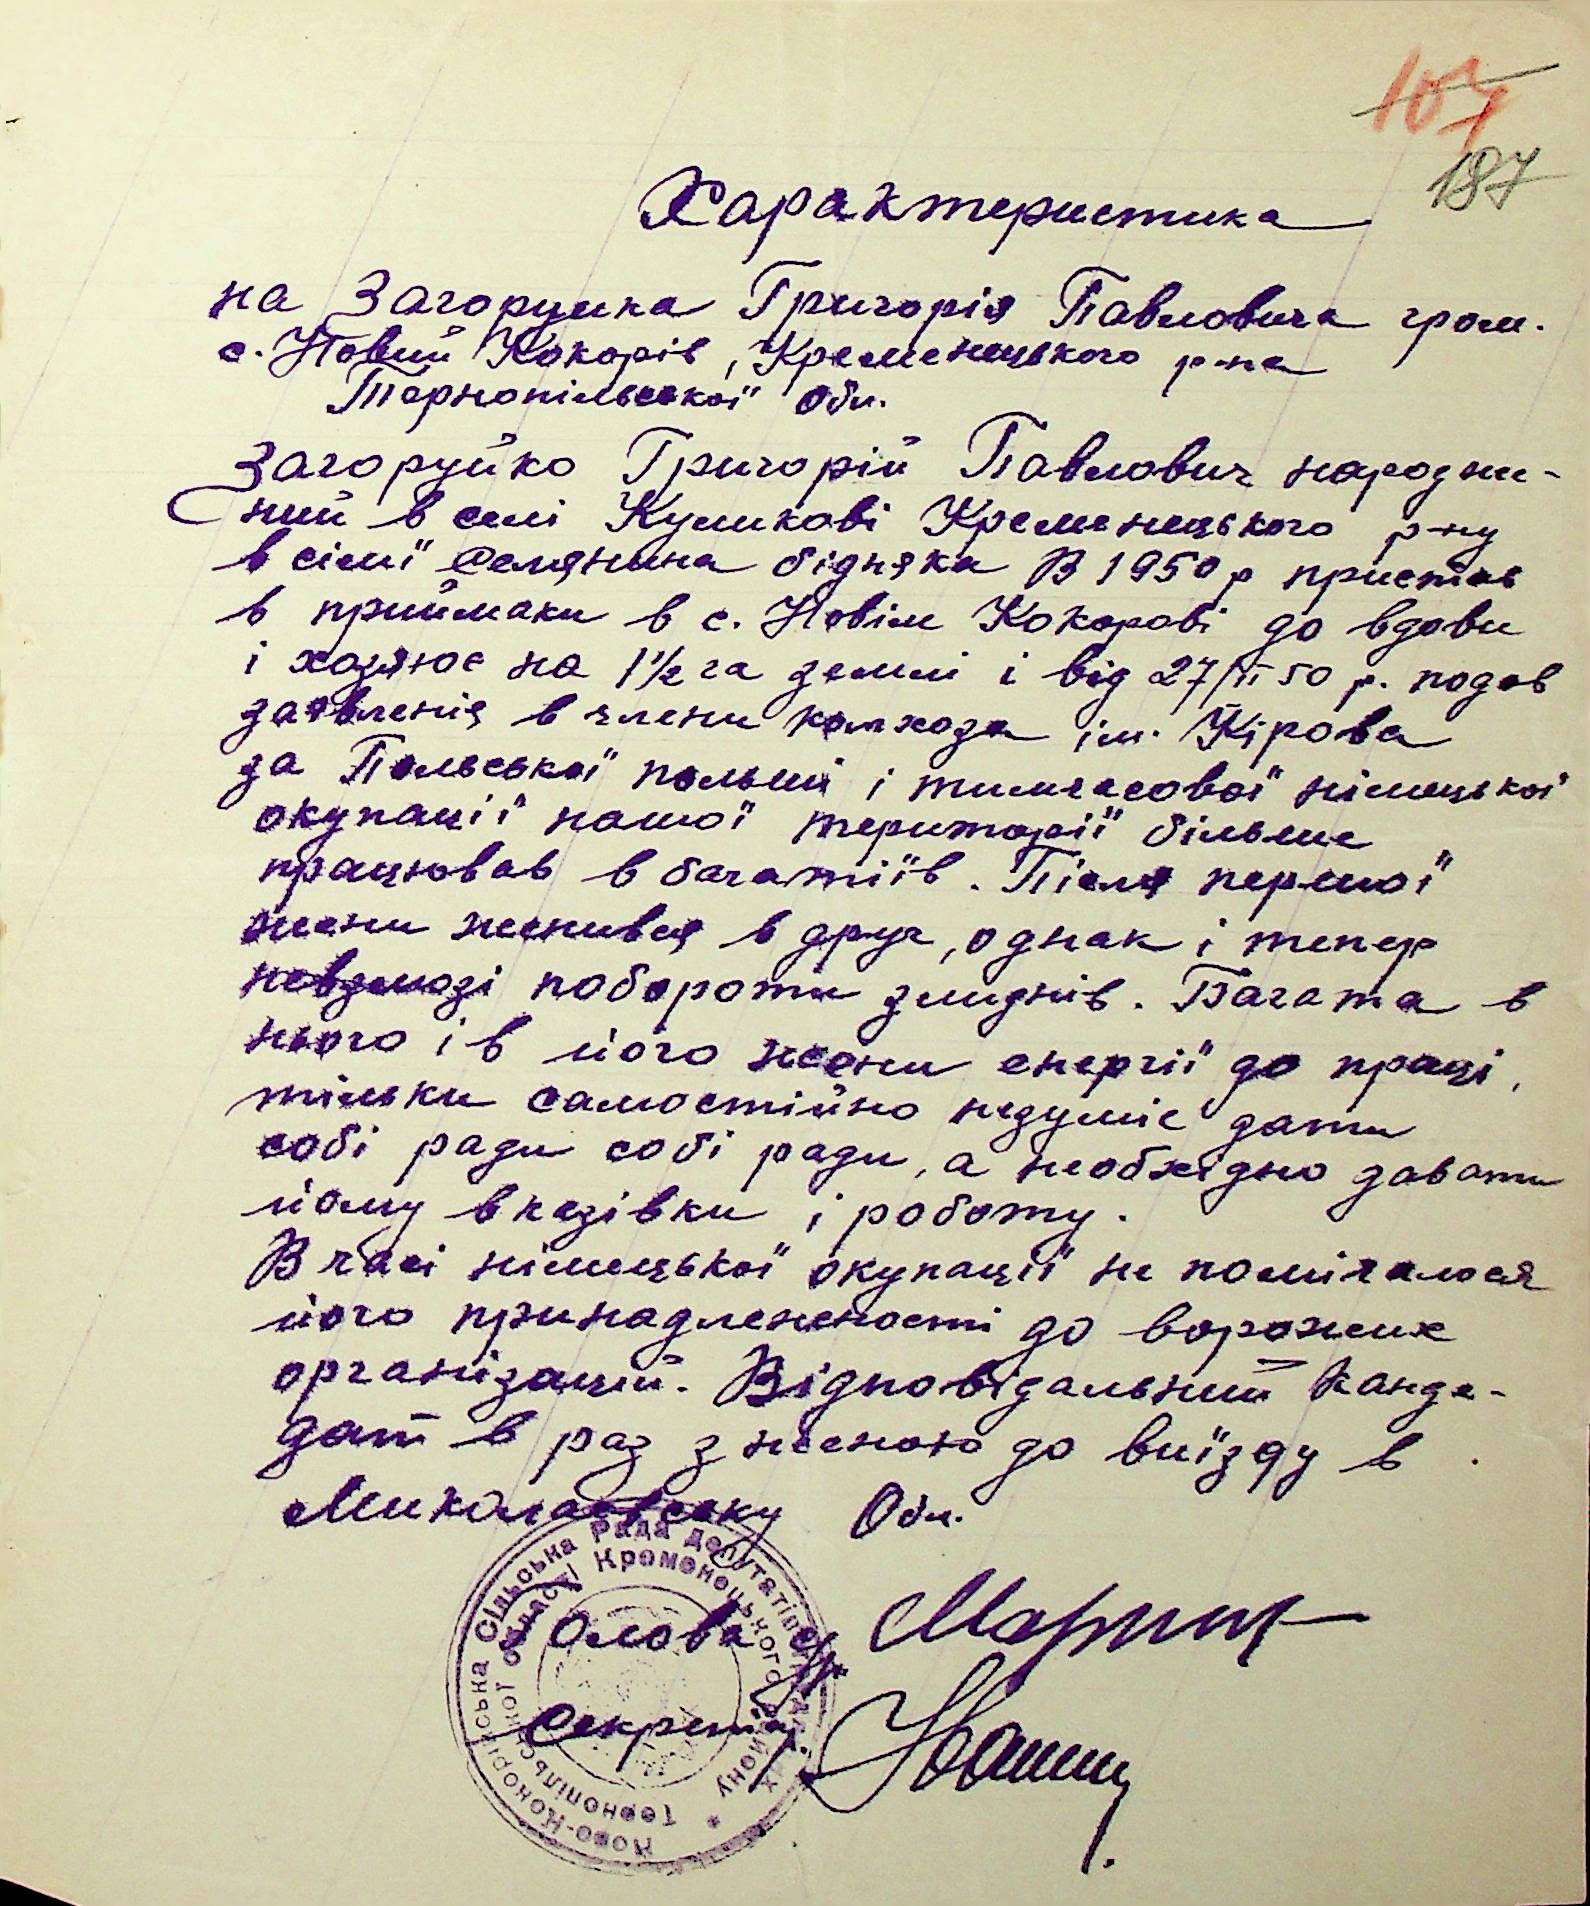 107
187
Характеристика
на Загоруйка Григорія Павловича гром.
с. Новий Кокорів, Кременецького р-на
Тернопільської Обл.
Загоруйко Григорій Павлович народже-
ний в селі Куликові Кременецького р-ну
в сімї селянина бідняка В 1950 р пристав
в приймаки в с. Новім Кокорові до вдови
і хазяює на 1 1/2 га землі і від 27/II 50 р. подав
заявленія в члени колхоза ім. Кірова
за Польської польщі і тимчасової німецької
окупації нашої території більше
працював в багатіїв. Після першої
жени женився в друг, однак і тепер
невзмозі побороти злиднів. Багата в
нього і в його жени енергії до праці,
тільки самостійно незуміє дати
собі ради собі ради, а необхідно давати
йому вказівки і роботу.
В часі німецької окупації не помічалося
його принадлежності до ворожих
організацій. Відповідальний канде-
дат в раз з женою до виїзду в
Миколаєвську Обл.
Голова с/р
Секретар
Ново-Кокорівська Сільська Рада депутатів трудящих
Кременецького району Тернопільської області